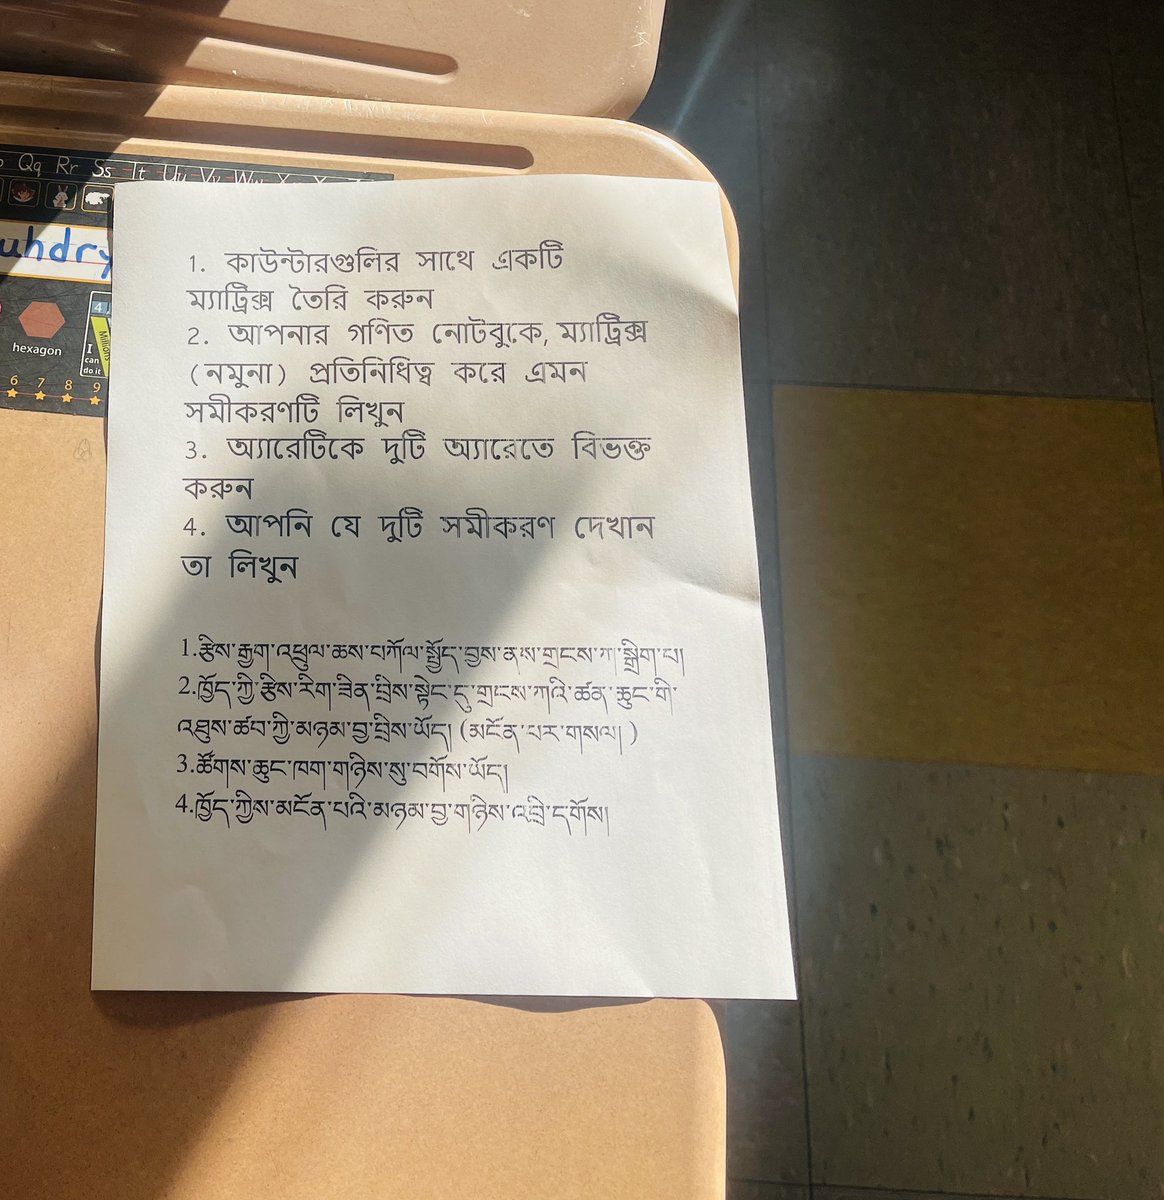 Qq Rr Ss Tt Uu Vv Ww
uhdry
hexagon
4
Millions
I
can
do it
6 7 8 9
1. কাউন্টারগুলির সাথে একটি
ম্যাট্রিক্স তৈরি করুন
2. আপনার গণিত নোটবুকে, ম্যাট্রিক্স
(নমুনা) প্রতিনিধিত্ব করে এমন
সমীকরণটি লিখুন
3. অ্যারেটিকে দুটি অ্যারেতে বিভক্ত
করুন
4. আপনি যে দুটি সমীকরণ দেখান
তা লিখুন
1.རྩིས་རྒྱག་འཕྲུལ་ཆས་བཀོལ་སྤྱོད་བྱས་ནས་གྲངས་ཀ་སྒྲིག་པ།
2.ཁྱོད་ཀྱི་རྩིས་རིག་ཟིན་བྲིས་སྟེང་དུ་གྲངས་ཀའི་ཚན་ཆུང་གི་
འཐུས་ཚབ་ཀྱི་མཉམ་བྱ་བྲིས་ཡོད། (མངོན་པར་གསལ། )
3.ཚོགས་ཆུང་ཁག་གཉིས་སུ་བགོས་ཡོད།
4.ཁྱོད་ཀྱིས་མངོན་པའི་མཉམ་བྱ་གཉིས་འབྲི་དགོས།